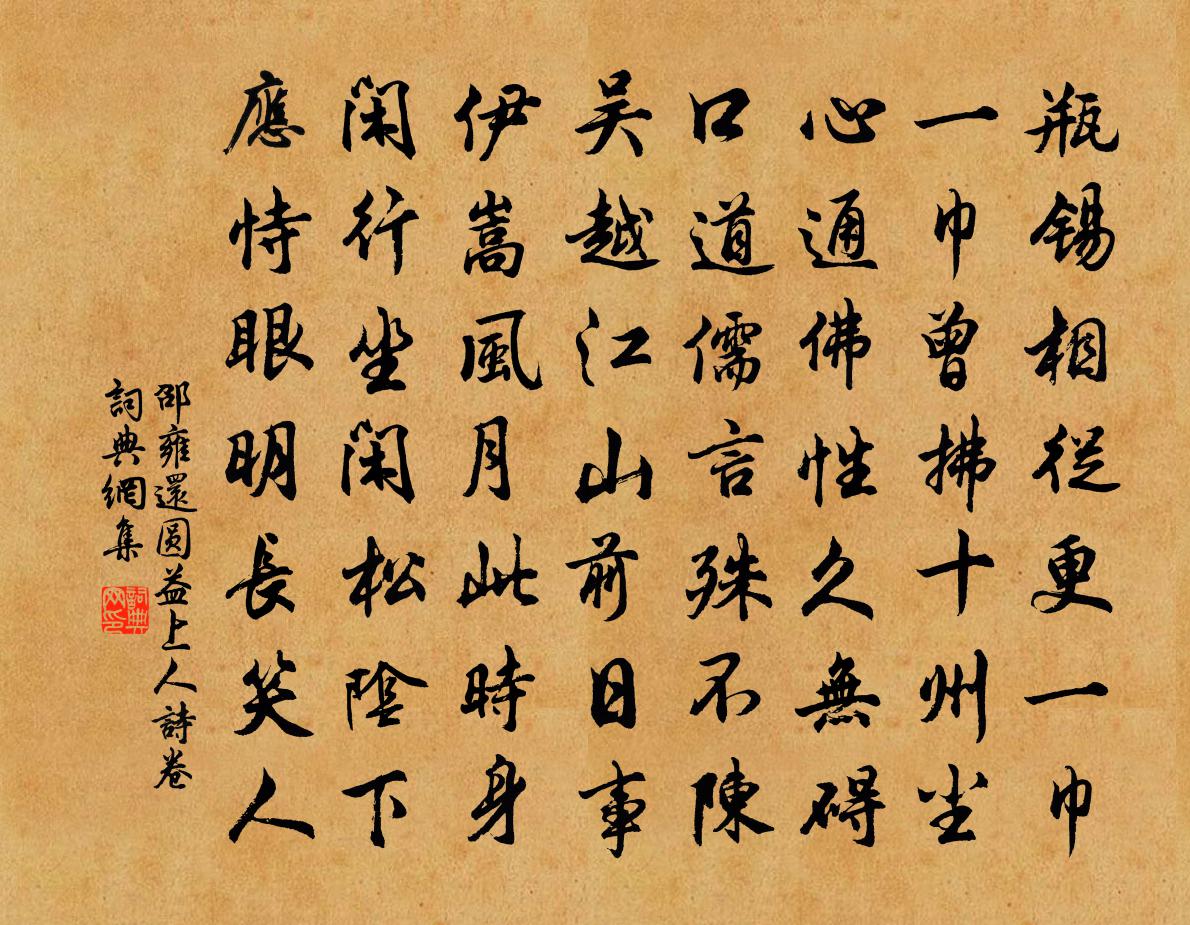 瓶錫相從更一巾
一巾曾拂十州尘
心通佛性久無碍
口道儒言殊不陳
吴越江山前日事
伊嵩風月此時身
閑行坐閑松陰下
應恃眼明長笑人
邵雍還圆益上人詩卷
詞典網集
詞典网印